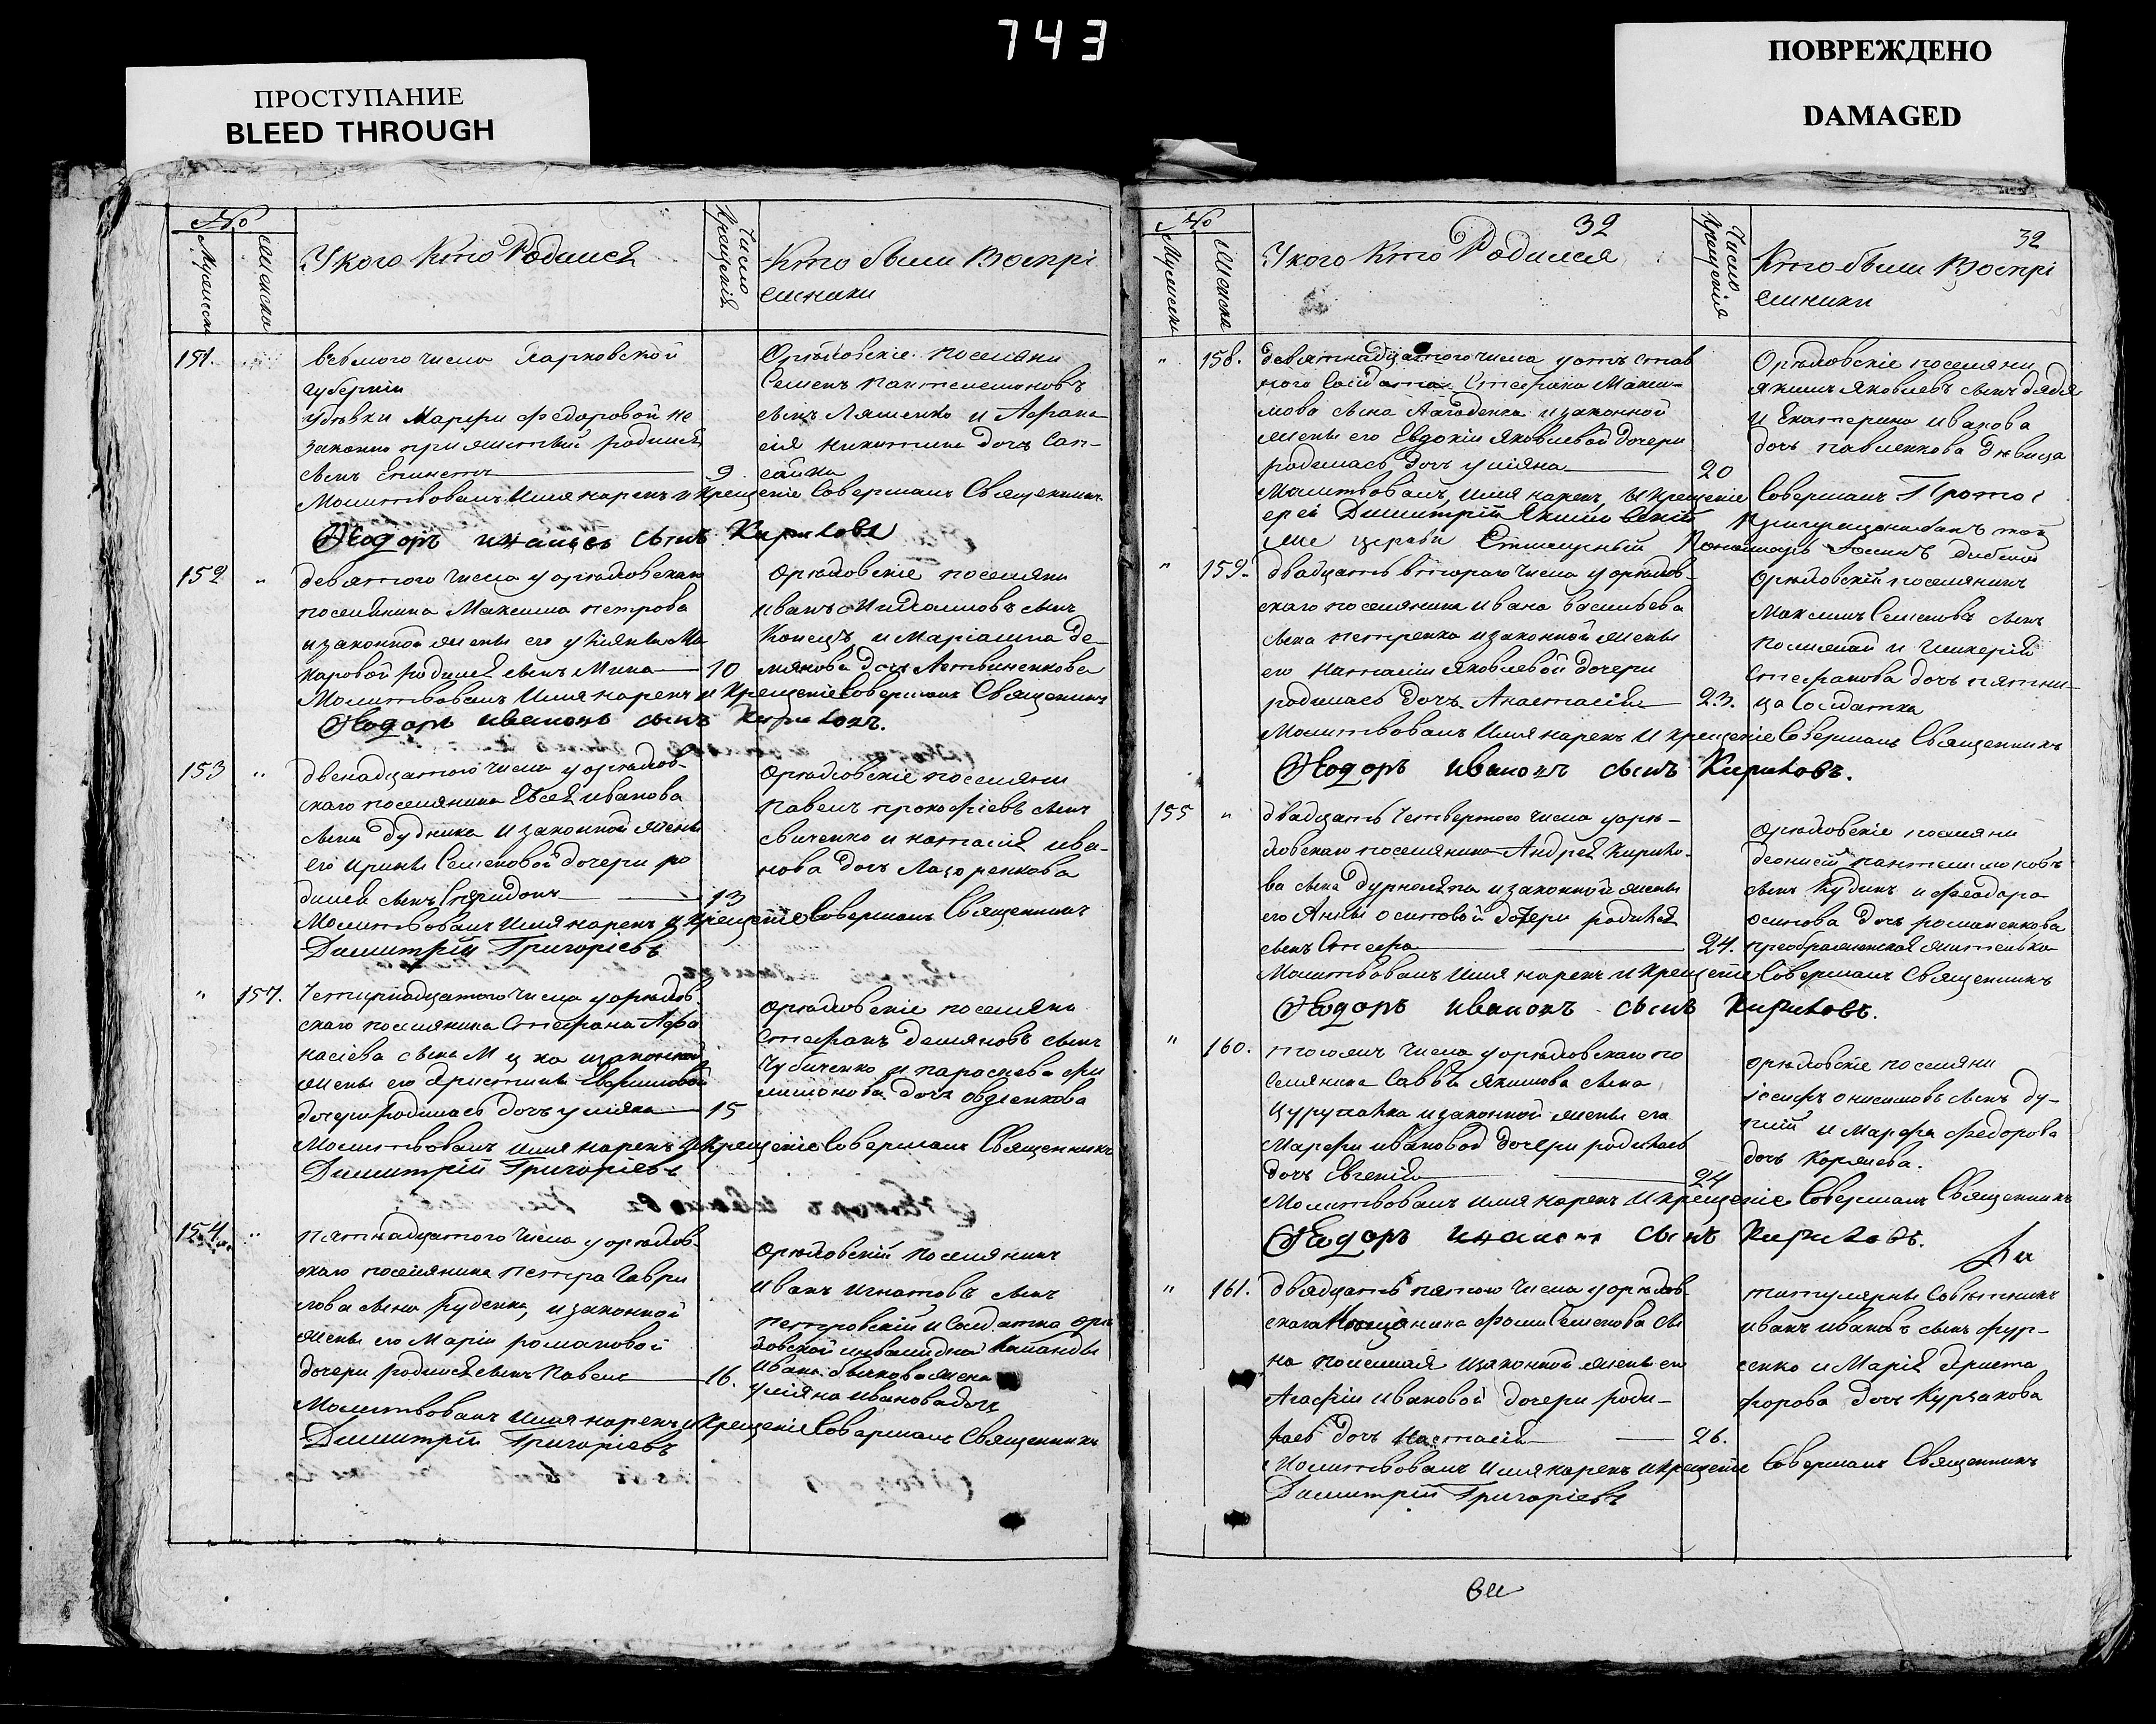 743
ПРОСТУПАНИЕ
BLEED THROUGH
ПОВРЕЖДЕНО
DAMAGED
№
Мужеска
Женска
У кого кто Родился
Число крещения
Кто были Воспрі
емники
151.
восмого числа Харковской
губерніи
Марфи Федоровой не
законно прижитый родился
сынъ
9
Орѣховскіе поселяни
Семенъ Пантелемоновъ
сынъ Ляшенко и Афана
сія Никитина дочь Сап-
сайка
Молитвовалъ Имя нарекъ и Крещеніе Совершалъ Священникъ
Ѳеодоръ сынъ Кириловъ
152 "
девятого числа у орѣховскаго
поселянина Максима петрова
и законной жены его улияны Ма
каровой родился сынъ Мина
10
Орѣховскіе поселяни
иванъ сынъ
и Маріамна де-
мянова дочь Литвиненкова
Молитвовалъ Имя нарекъ и Крещеніе Совершалъ Священникъ
Ѳеодоръ ивановъ сынъ Кириловъ.
153 "
двенадцатого числа у орѣхов-
скаго поселянина Евсея иванова
сына дудника и законной жены
его ирины Семеновой дочери ро
дился сынъ Спиридонъ
13
Орѣховскіе поселяни
павелъ прокофіевъ сынъ
и наталія ива-
нова дочь Лазоренкова
Молитвовалъ Имя нарекъ и Крещеніе Совершалъ Священникъ
Димитрій Григоріевъ
" 157.
Четирнадцатого числа у орѣхов.
скаго поселянина Стефана Афа
насіева сына и законной
жены его Христины Евфимовой
дочери родилась дочь улияна
15
Орѣховскіе поселяни
Стефанъ Демяновъ сынъ
Чубиченко и параскева фи
лимонова дочь овдіенкова
Молитвовалъ имя нарекъ и Крещеніе Совершалъ Священникъ
Димитрій Григоріевъ
154. "
пятнадцатого числа у орѣхов.
скаго поселянина петра Гаври
лова сына руденка, и законной
жены его Маріи романовой
дочери родился сынъ Павелъ
16.
Орѣховскій поселянинъ
Иванъ игнатовъ сынъ
петровскій и Солдатка орѣ
ховской инвалидной команды
ивана быкова жена
улияна иванова дочь
Молитвовалъ имя нарекъ и Крещеніе Совершалъ Священникъ
Димитрій Григоріевъ
№
Мужеска
Женска
У кого кто Родился
32
Число крещения
32
Кто были Воспрі
емники
" 158.
девятнадцатого числа у отстав
ного Солдата Стефана Макси-
мова сына и законной
жены его Евдокіи Яковлевой дочери
родилась дочь улияна
20
Орѣховскіе поселяни
якимъ яковлевъ сынъ дядя
и Екатерина иванова
дочь павленкова дѣвица
Молитвовалъ, имя нарекъ, и Крещеніе Совершалъ Прото і
ерей Димитрій
же церкви Пономарь
" 159.
двадцать второго числа у орѣхов-
скаго поселянина ивана васильева
сына петренка и законной жены
его наталіи яковлевой дочери
родилась дочь Анастасія
23.
Орѣховскій поселянинъ
Максимъ Семеновъ сынъ
и Гликерія
Стефанова дочь пятни-
ца Солдатка
Молитвовалъ Имя нарекъ и крещеніе Совершалъ Священникъ
Ѳеодоръ ивановъ сынъ Кириловъ.
155 "
двадцать четвертого числа у орѣ-
ховскаго поселянина Андрея Кирило-
ва сына и законной жены
его Анны осиповой дочери родился
сынъ
24.
Орѣховскіе поселяни
деонисій пантелимоновъ
сынъ Кудинъ и Феодора
осипова дочь романенкова
преображенская жителька
Молитвовалъ имя нарекъ и Крещеніе Совершалъ Священникъ
Ѳеодоръ ивановъ сынъ Кириловъ.
" 160.
тогожъ числа у орѣховскаго по
селянина Саввы якимова сына
и законной жены его
Марфи ивановой дочери родилась
дочь Евгенія
24
Орѣховскіе поселяни
іосифъ онисимовъ сынъ ду-
и Марфа федорова
дочь Коржева.
Молитвовалъ имя нарекъ и крещеніе Совершалъ Священникъ
Ѳеодоръ сынъ Кириловъ.
" 161.
двадцать пятого числа у орѣхов-
скаго Фомы Семенова сы
на и законной жены его
Агафіи ивановой дочери роди-
лась дочь Настасія
26.
титулярный Совѣтникъ
иванъ ивановъ сынъ фур-
сенко и Марія Христо
форова дочь Курзакова
Молитвовалъ имя нарекъ и крещеніе Совершалъ Священникъ
Димитрій Григоріевъ